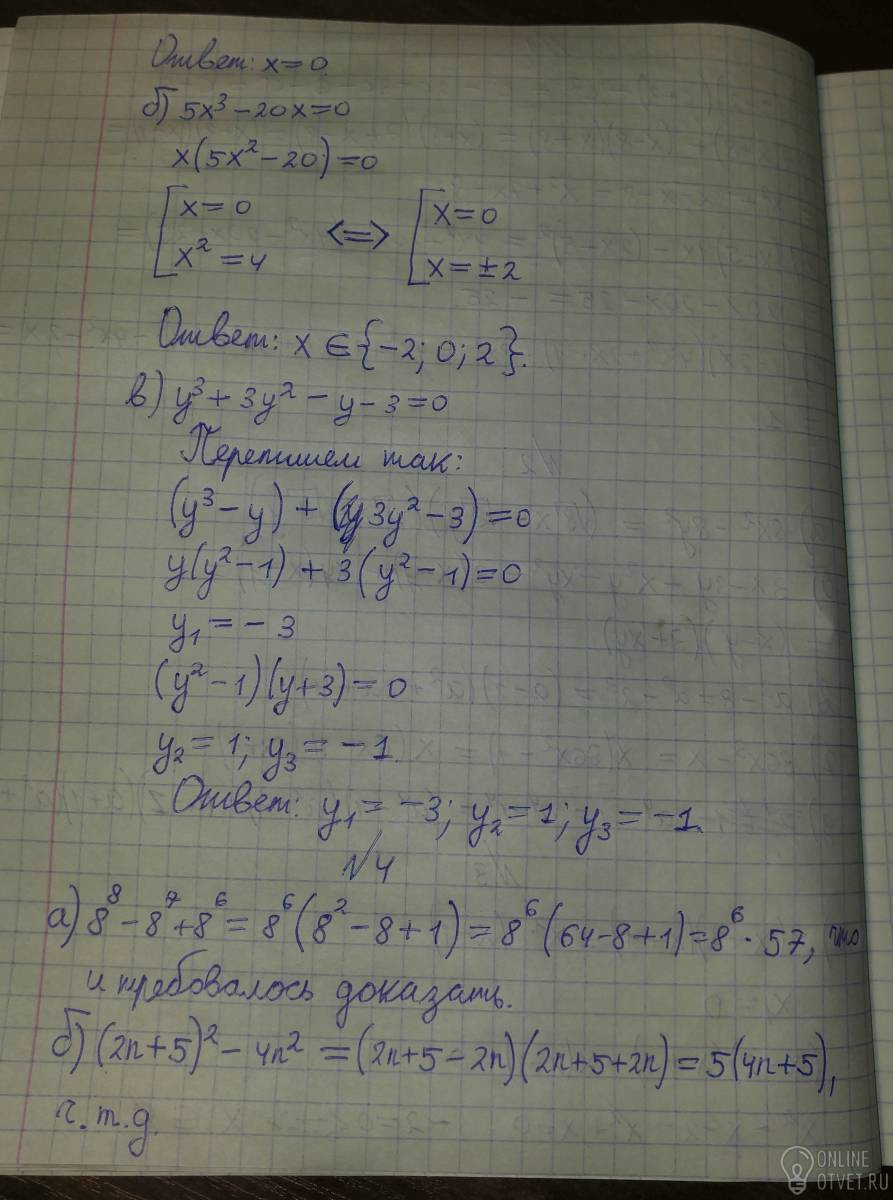 Ответ: x=0
б) 5x³-20x=0
x(5x²-20)=0
[x=0 <=> [x=0
x²=4 x=±2
Ответ: x∈{-2; 0; 2}.
в) y³+3y²-y-3=0
Перепишем так:
(y³-y)+(3y²-3)=0
y(y²-1)+3(y²-1)=0
y₁=-3
(y²-1)(y+3)=0
y₂=1; y₃=-1.
Ответ: y₁=-3; y₂=1; y₃=-1.
№4
а) 8⁸-8⁷+8⁶=8⁶(8²-8+1)=8⁶(64-8+1)=8⁶·57, что
и требовалось доказать.
б) (2n+5)²-4n²=(2n+5-2n)(2n+5+2n)=5(4n+5),
ч.т.д.
ONLINE
OTVET.RU